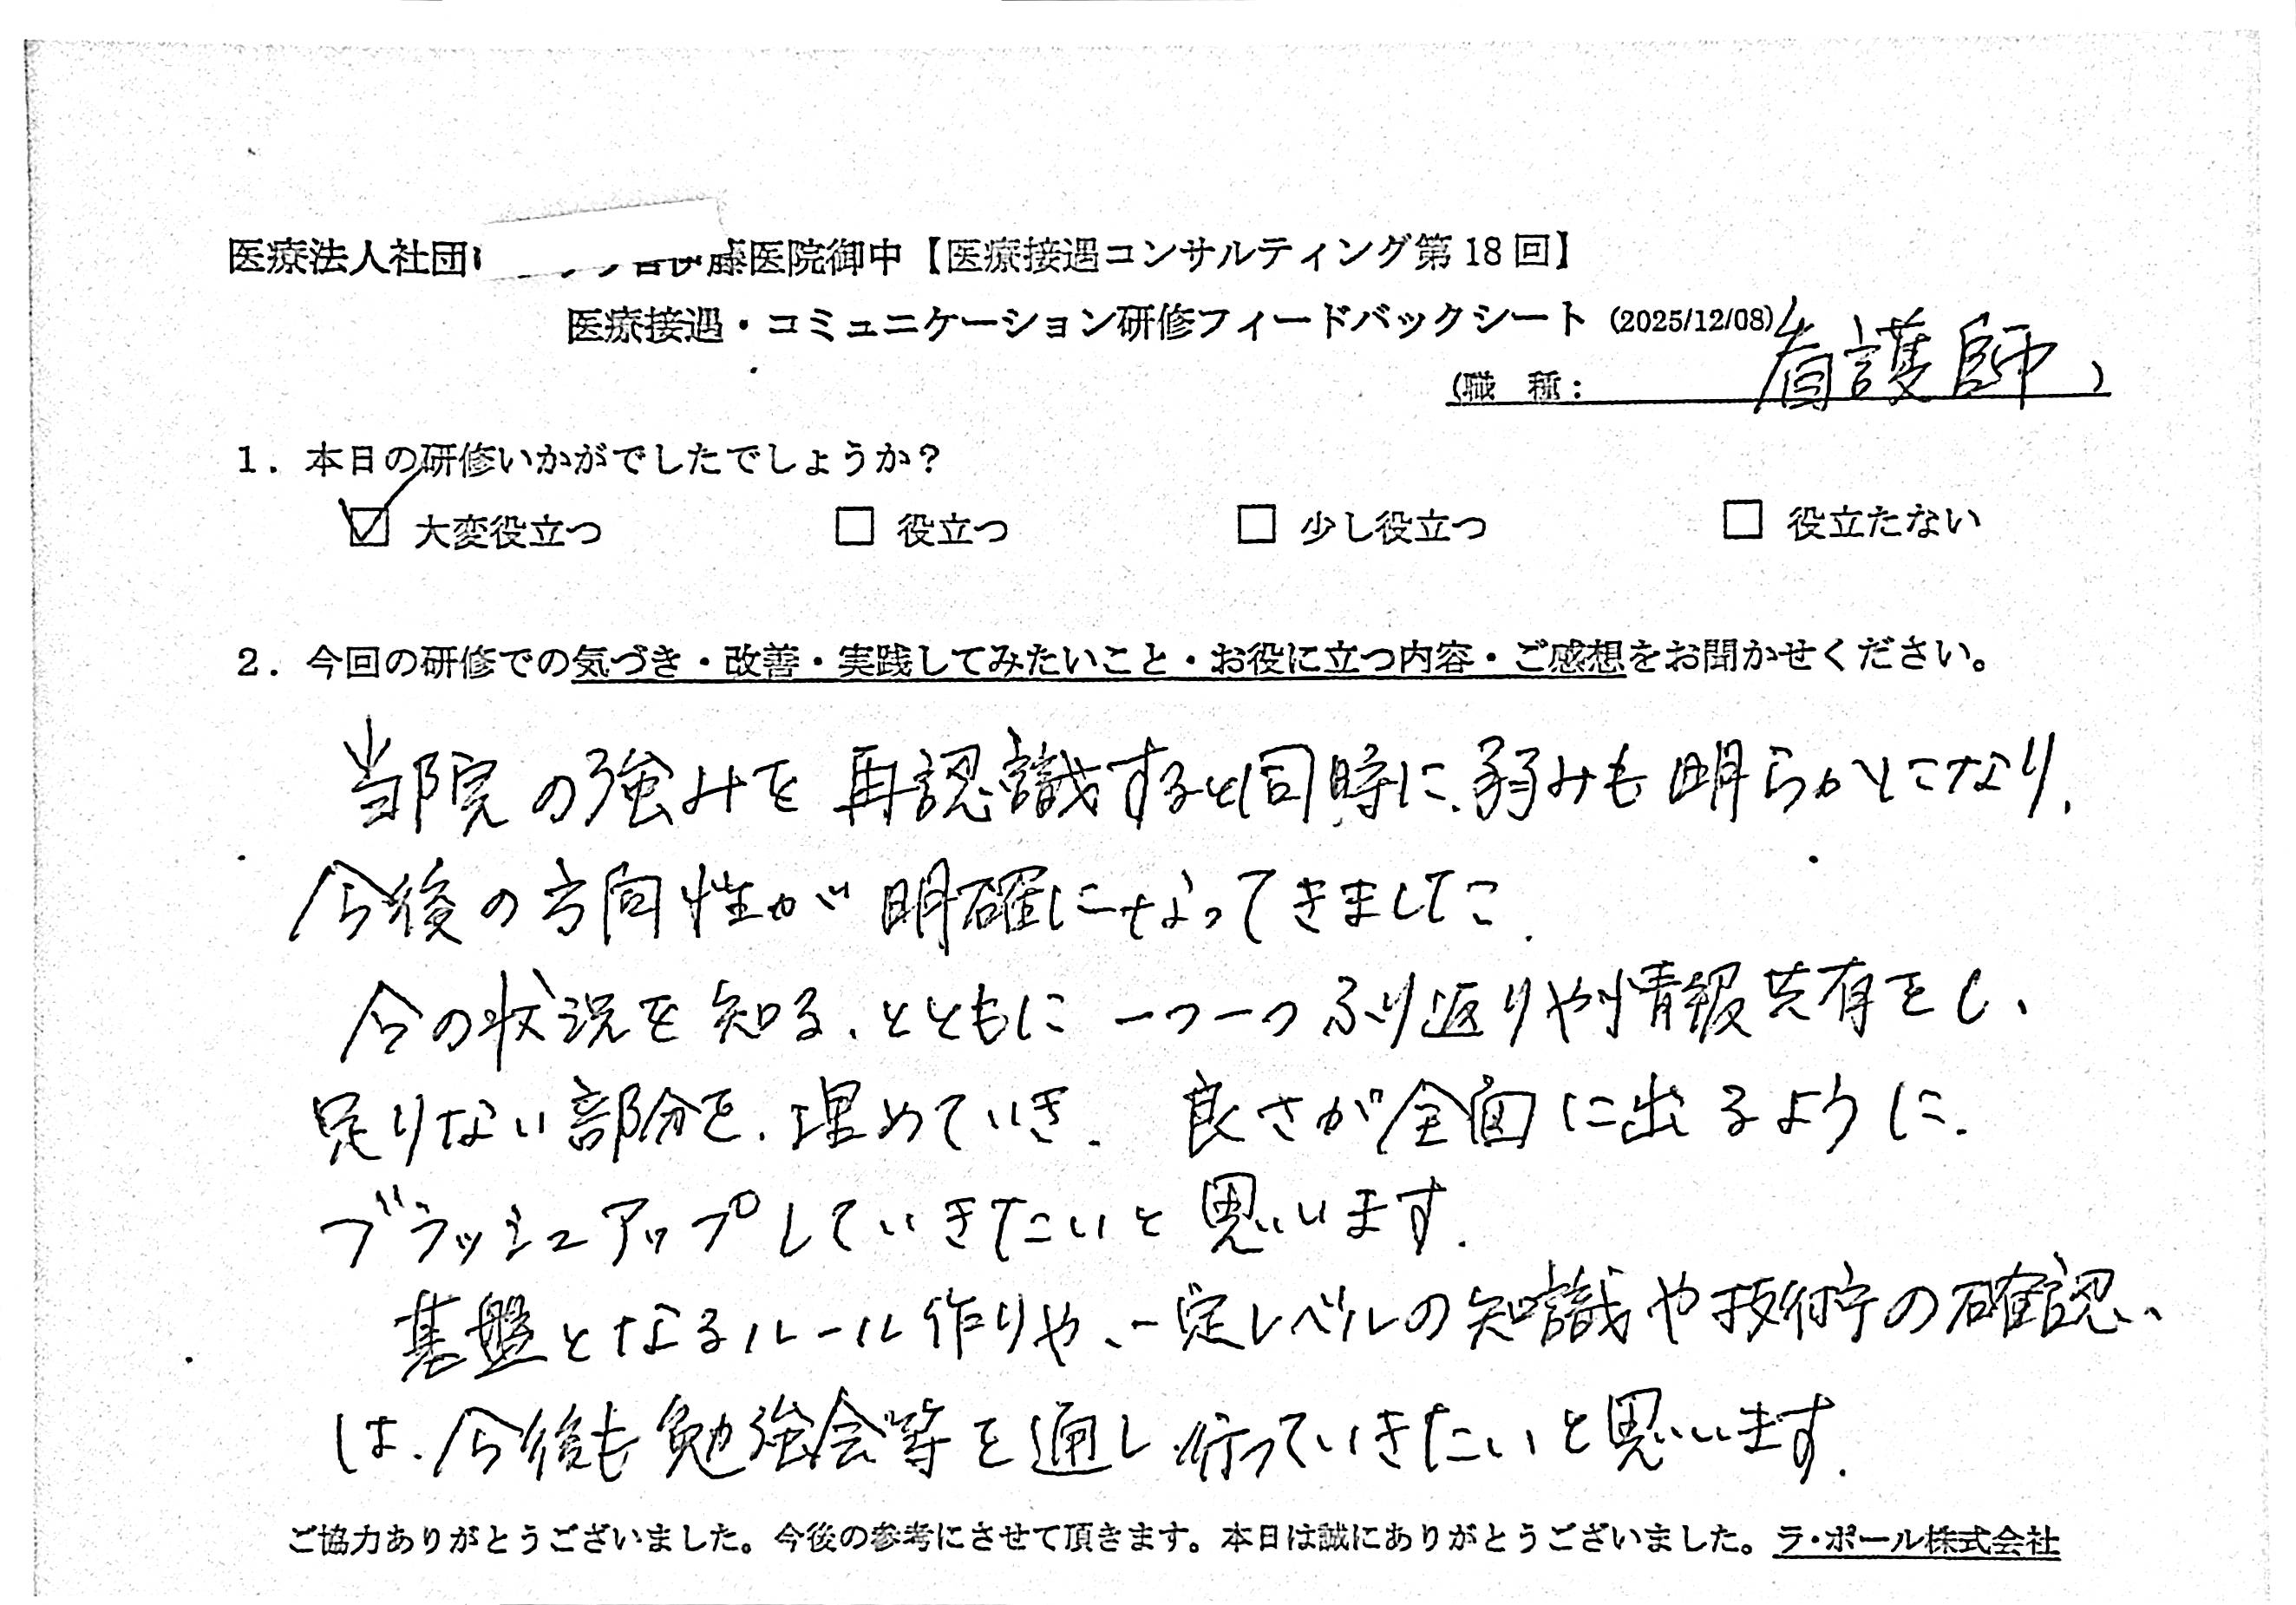 医療法人社団 医院御中【医療接遇コンサルティング第18回】
医療接遇・コミュニケーション研修フィードバックシート (2025/12/08)
(職 種: 看護師 )
1. 本日の研修いかがでしたでしょうか?
☑ 大変役立つ □ 役立つ □ 少し役立つ □ 役立たない
2. 今回の研修での気づき・改善・実践してみたいこと・お役に立つ内容・ご感想をお聞かせください。
当院の強みを再認識すると同時に、弱みも明らかとなり、
今後の方向性が明確になってきました.
今の状況を知る、とともに一つ一つふり返りや情報共有をし、
足りない部分を、埋めていき、良さが全面に出るように、
ブラッシュアップしていきたいと思います.
基盤となるルール作りや、一定レベルの知識や技術の確認、
は、今後も勉強会等を通し行っていきたいと思います.
ご協力ありがとうございました。今後の参考にさせて頂きます。本日は誠にありがとうございました。ラ・ポール株式会社